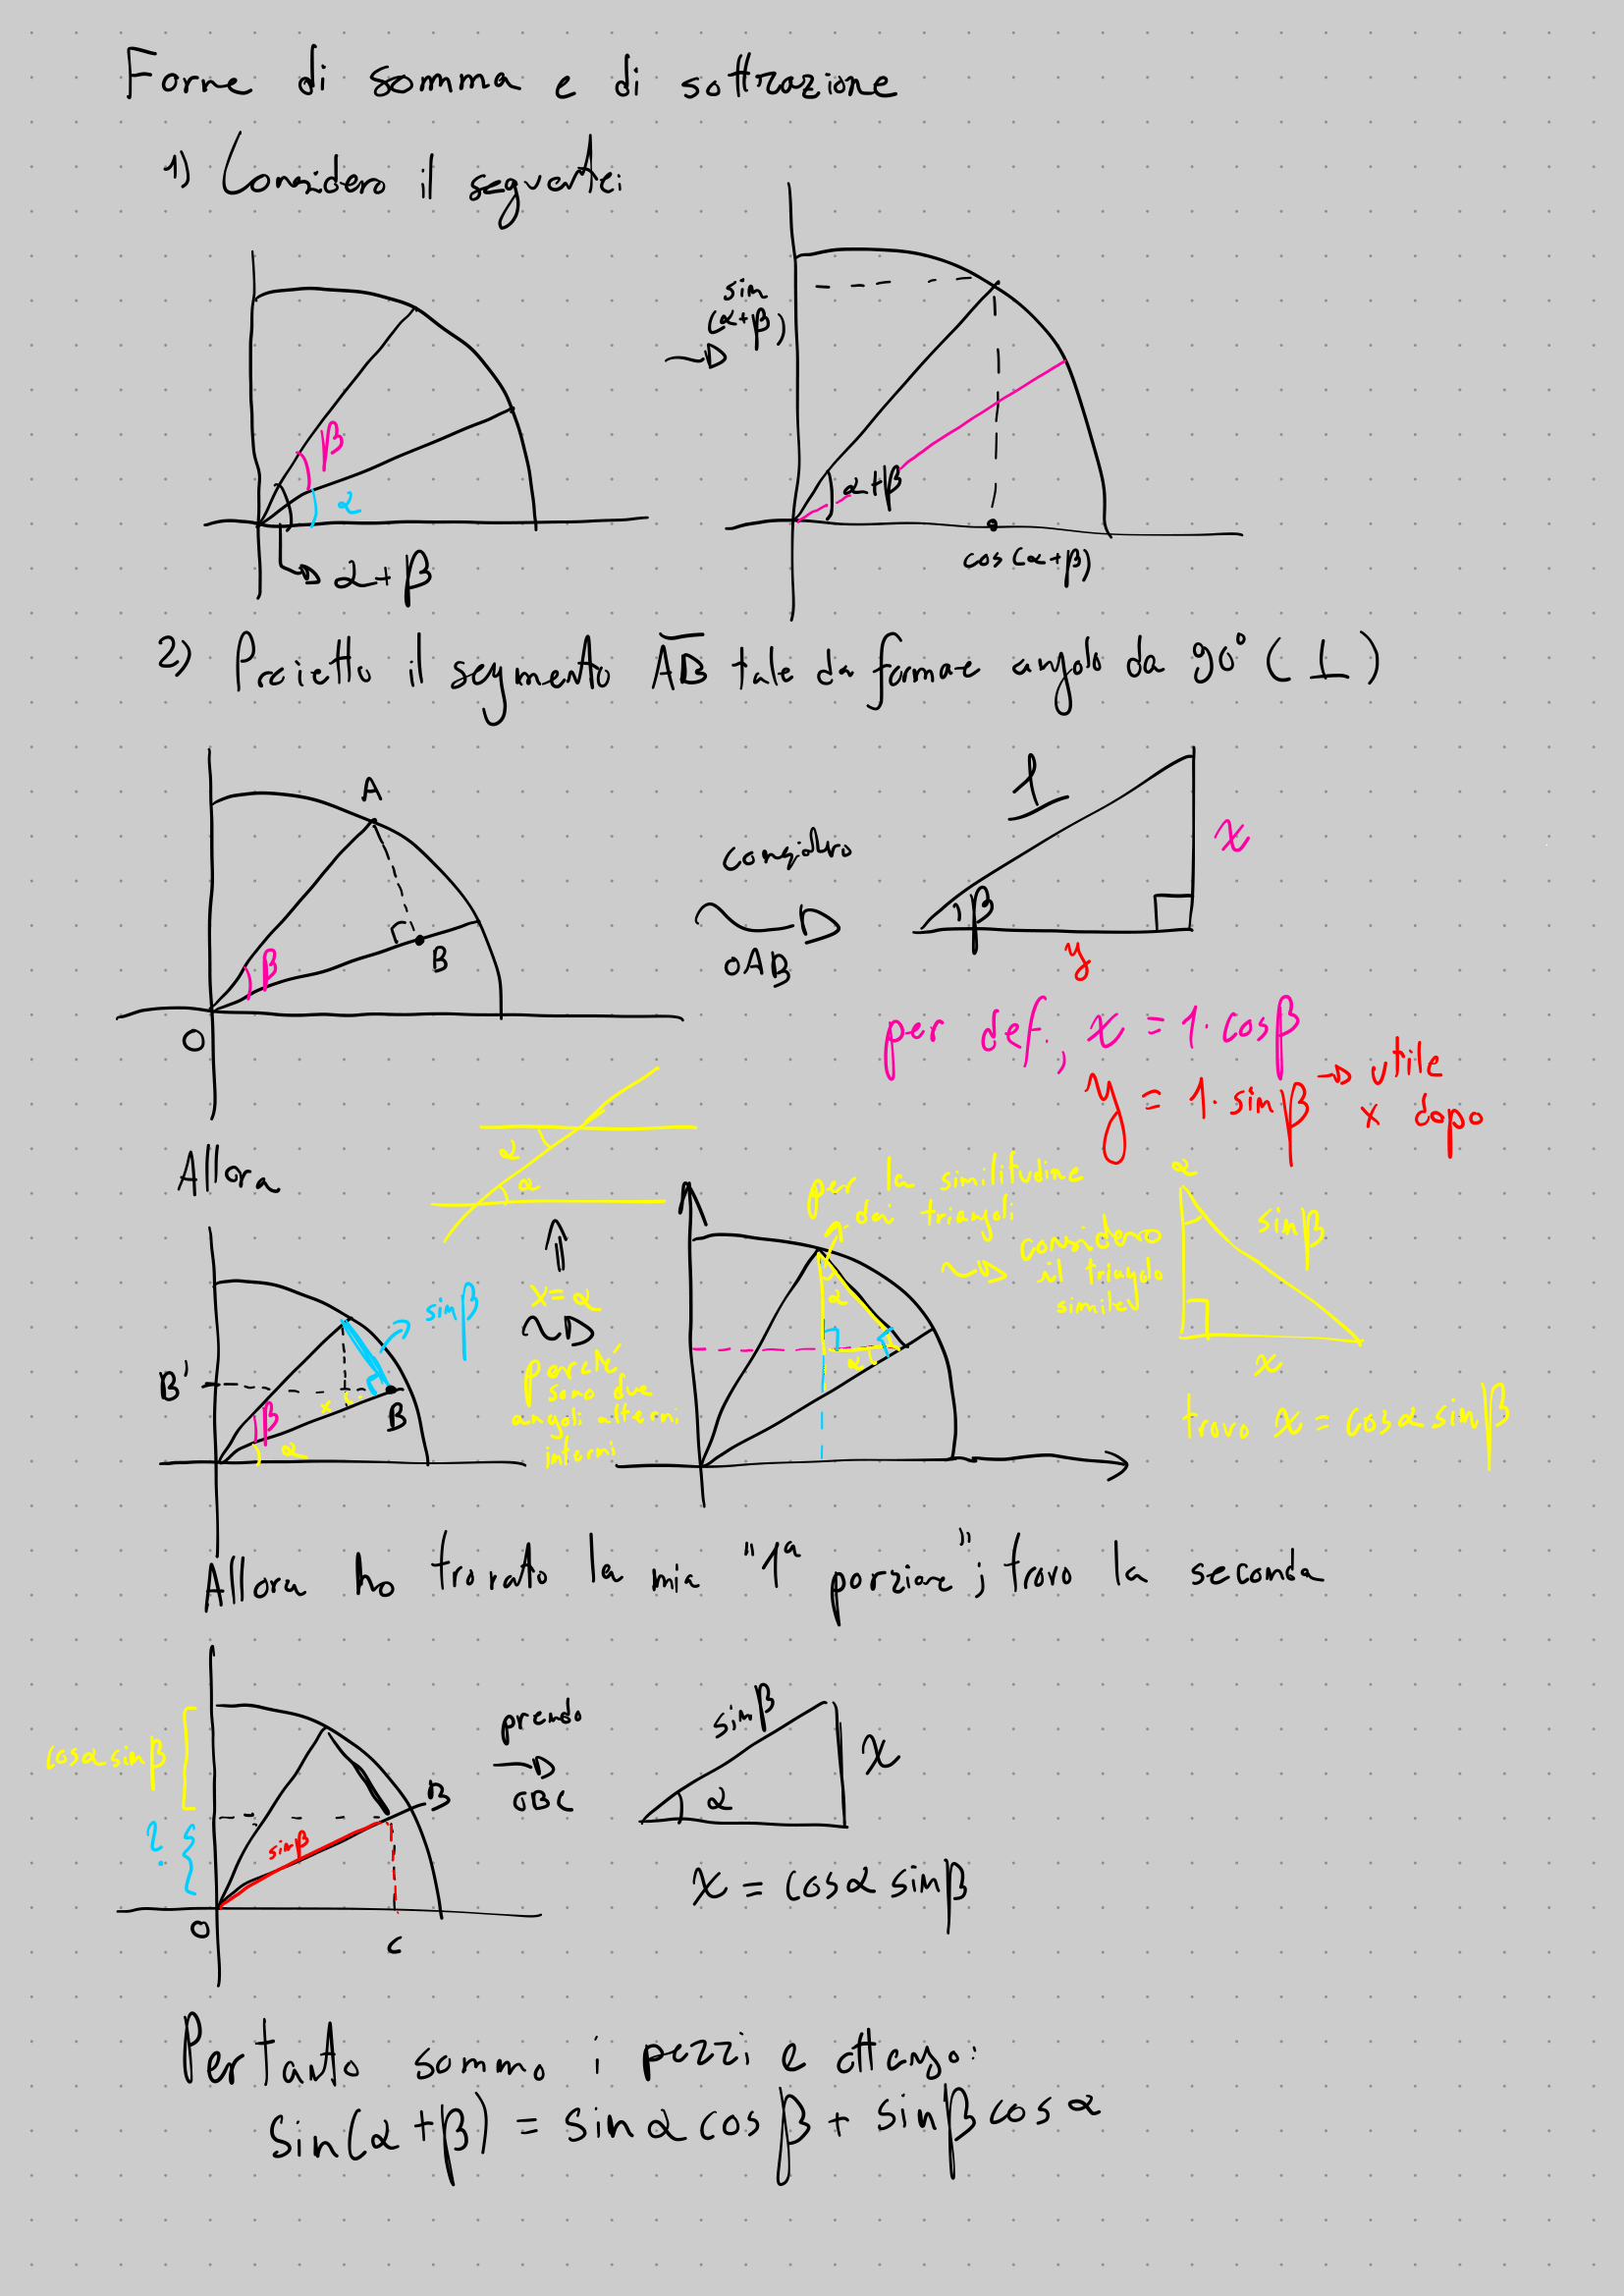 Forme di somma e di sottrazione
1) Considero il seguente:
β
α
α+β
sin
(α+β)
α+β
cos(α+β)
2) Proietto il segmento A̅B̅ tale da formare angolo da 90° (⊥)
A
B
β
O
considero
OAB
1
β
x
y
per def., x = 1·cosβ
y = 1·sinβ → utile
x dopo
Allora
α
α
⇑
x=α
perché
sono due
angoli alterni
interni
B'
β
α
x
B
sinβ
per la similitudine
dei triangoli
considero
il triangolo
simile
α
α
α
sinβ
x
trovo x = cosα sinβ
Allora ho trovato la mia "1ª porzione"; trovo la seconda
cosα sinβ
?
sinβ
B
O
C
prendo
OBC
sinβ
α
x
x = cosα sinβ
Pertanto sommo i pezzi e ottengo:
sin(α+β) = sinα cosβ + sinβ cosα